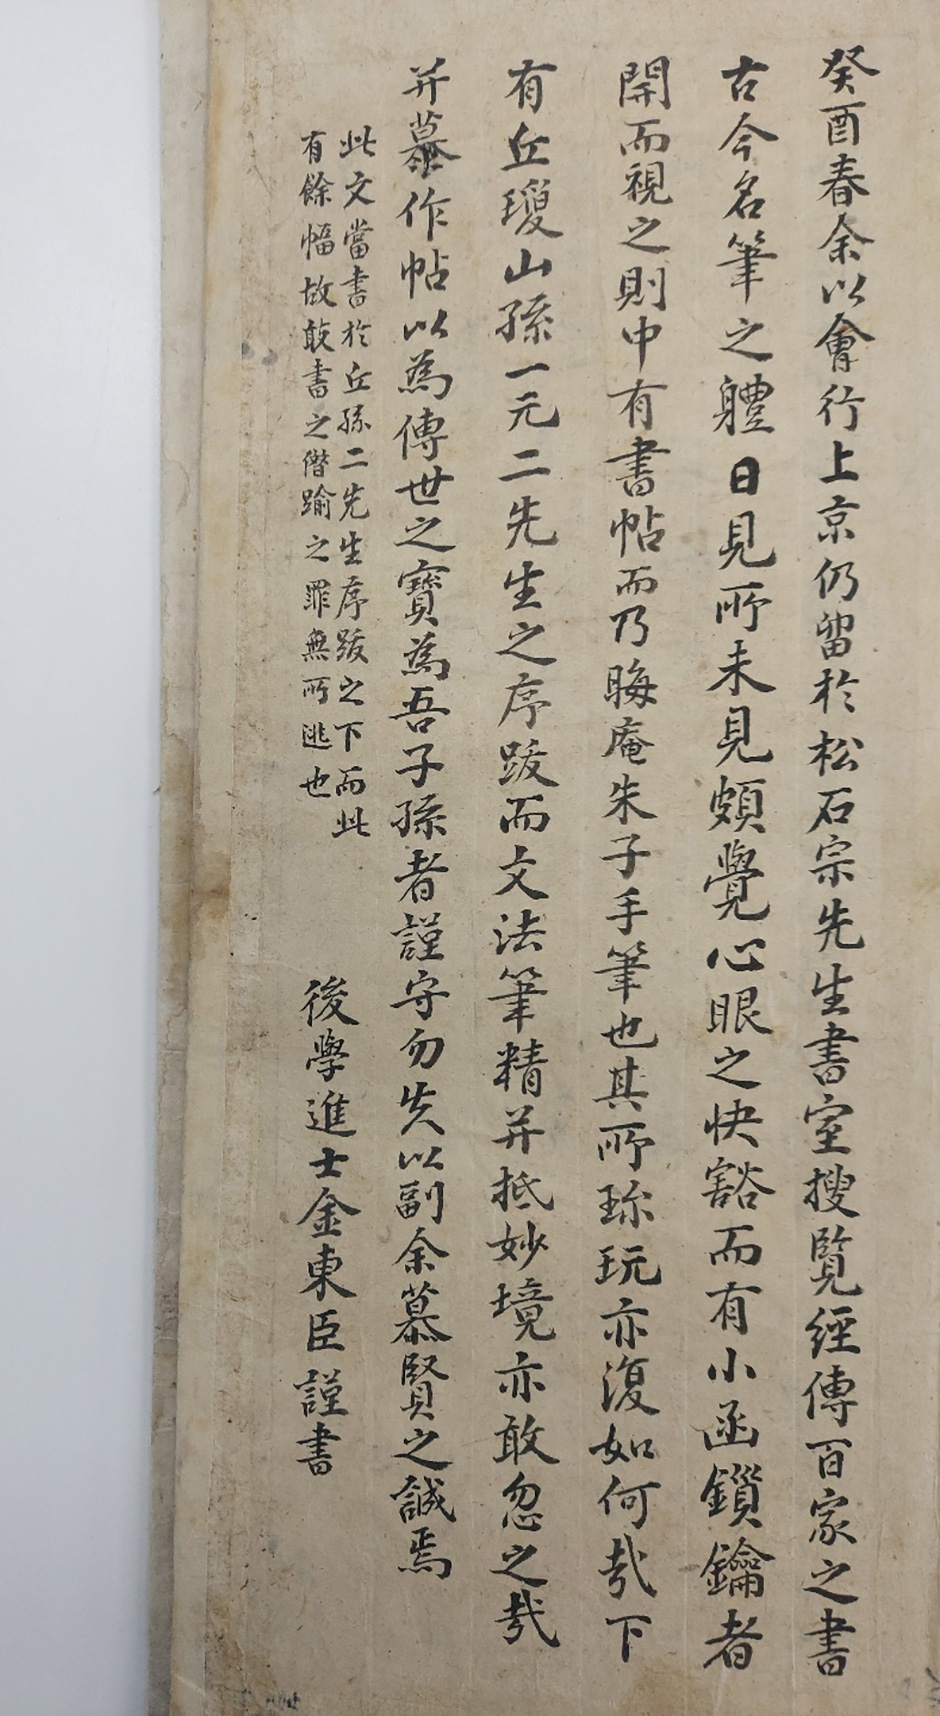 癸酉春余以會行上京仍留於松石宗先生書室搜覽經傳百家之書
古今名筆之軆日見所未見頗覺心眼之快豁而有小函鎖鑰者
開而視之則中有書帖而乃晦庵朱子手筆也其所珎玩亦復如何㢤下
有丘瓊山孫一元二先生之序跋而文法筆精并抵妙境亦敢忽之㢤
并摹作帖以為傳世之寶為吾子孫者謹守勿失以副余慕賢之誠焉
此文當書於丘孫二先生序跋之下而此
有餘幅故敢書之僭踰之罪無所逃也
後學進士金東臣謹書